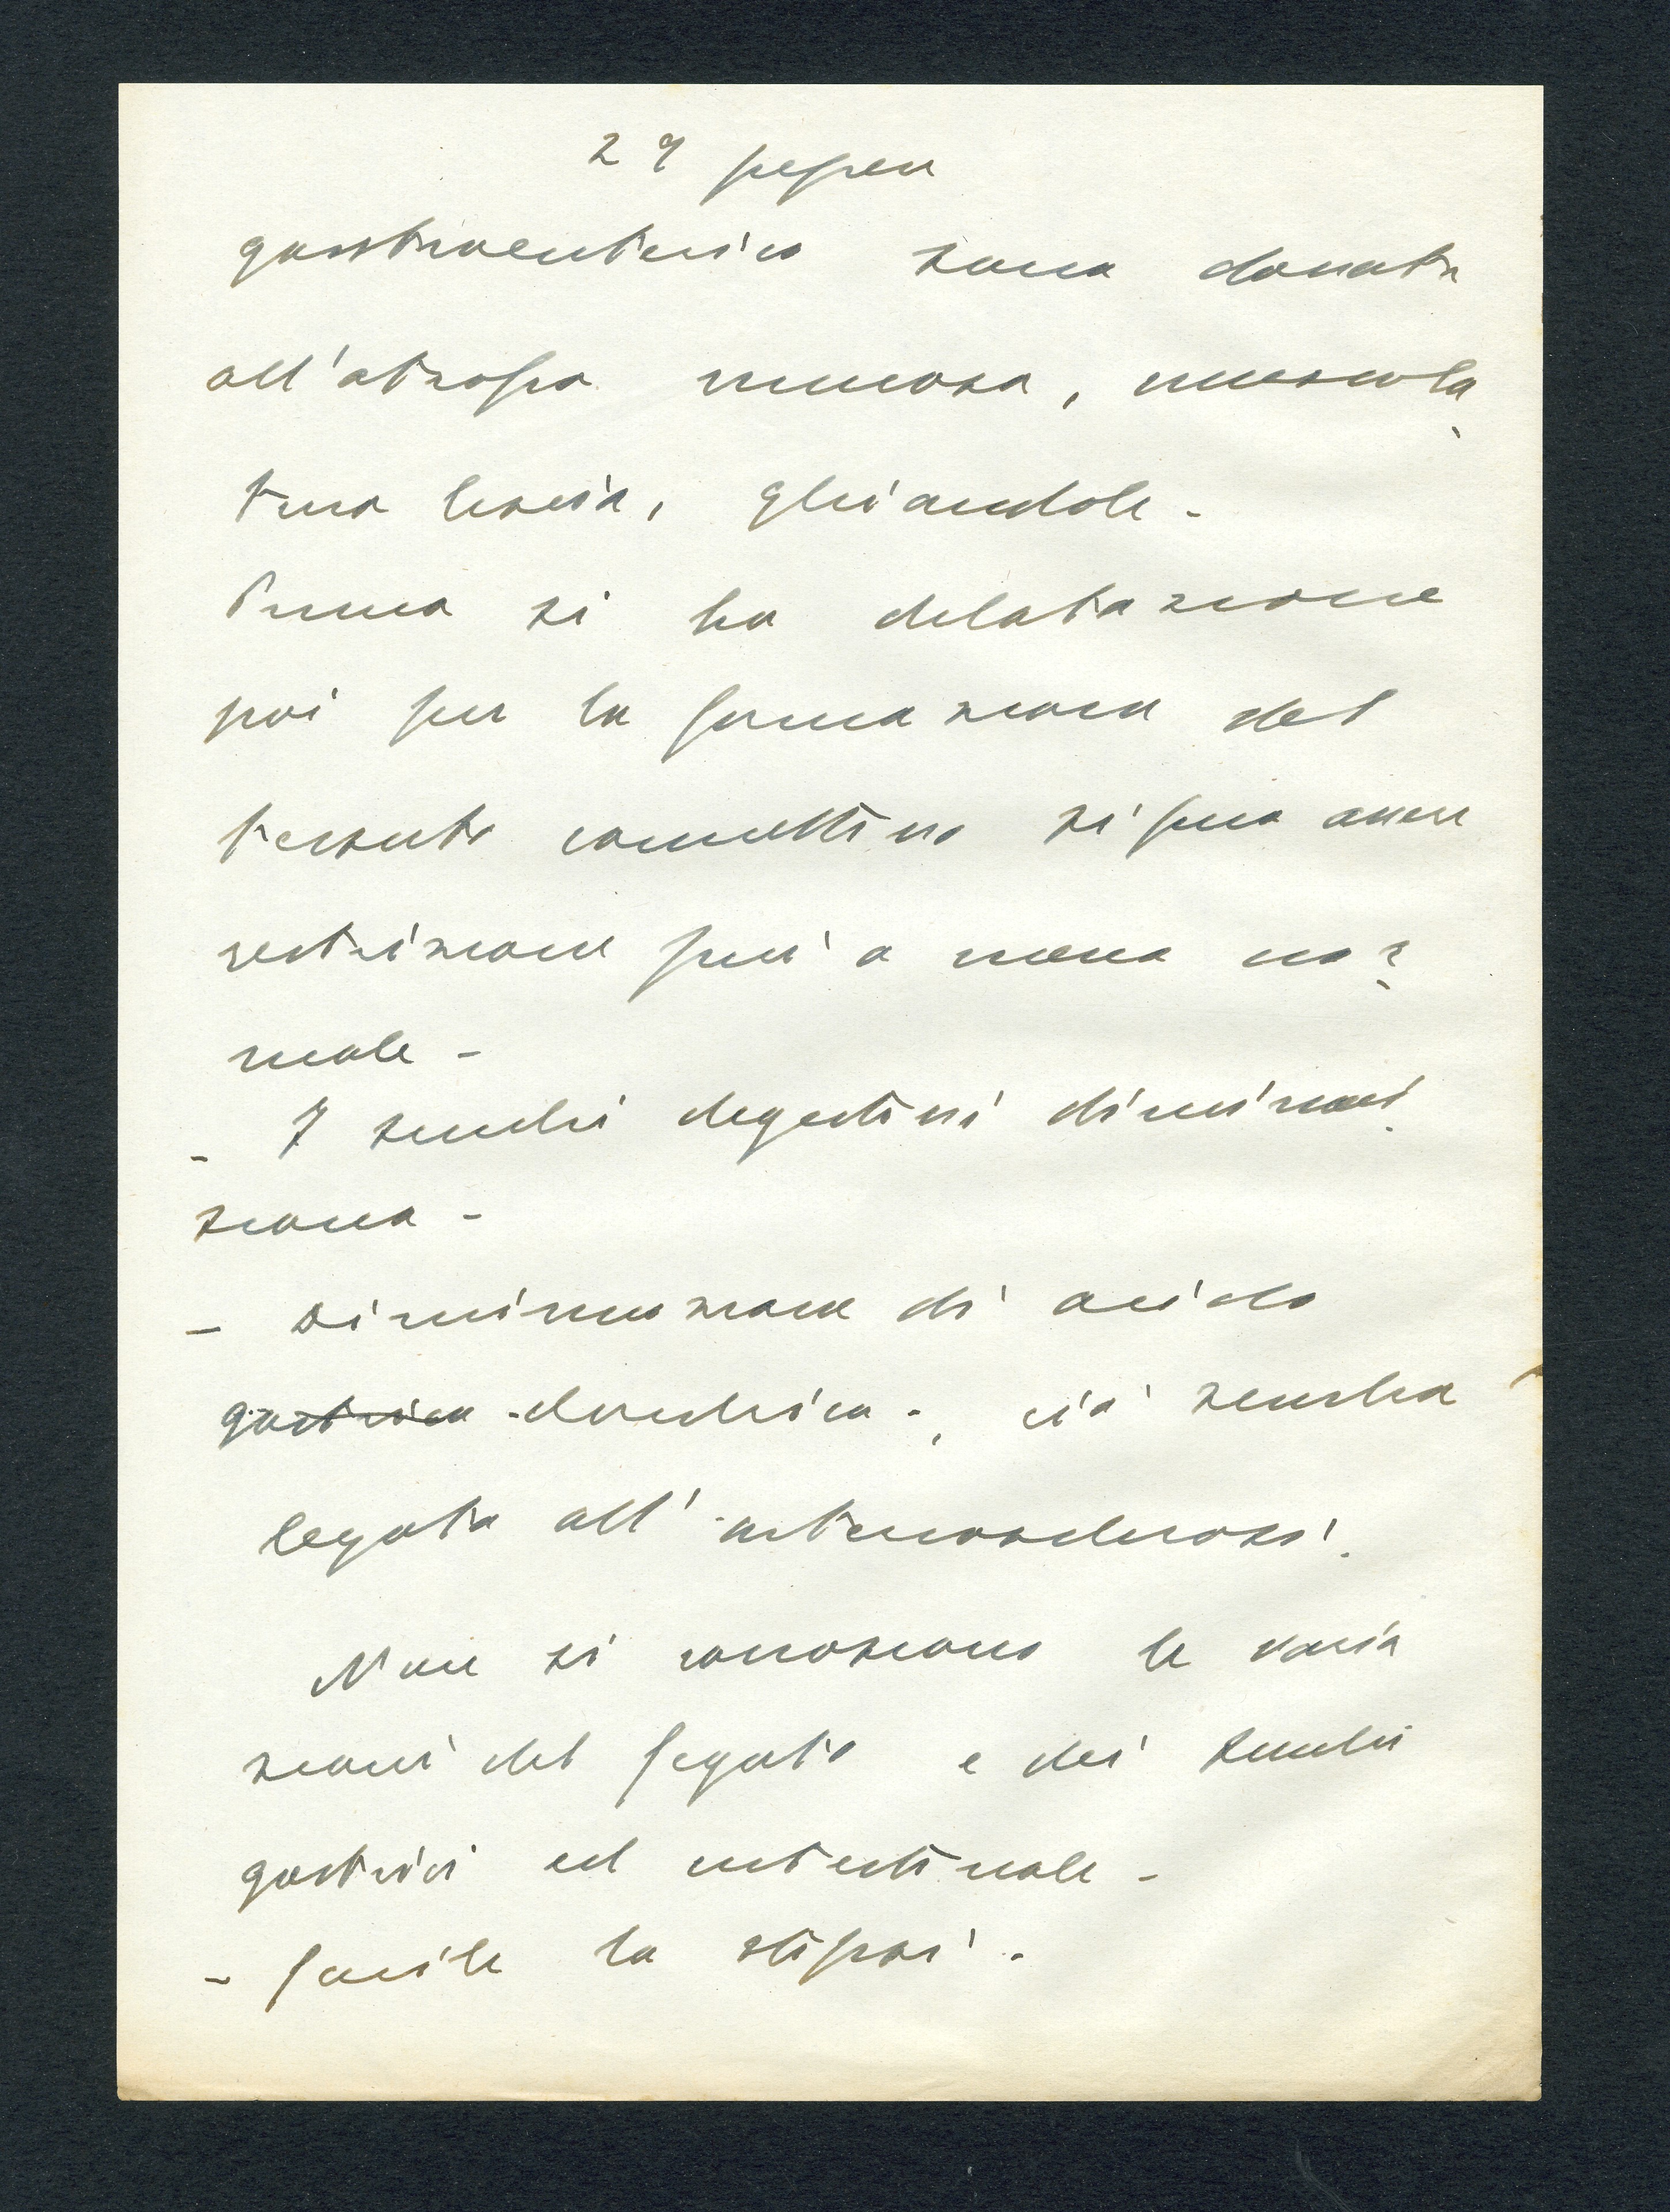 27 pepsa
gastroenterico sono dovute
all'atrofia mucosa, muscola
tura liscia, ghiandole -
Prima si ha dilatazione
poi per la formazione del
tessuto connettivo si può avere
restrizione più o meno nor
male -
- I succhi digestivi diminui
scono -
- Diminuzione di acido
gastrico cloridrico -, ciò sembra
legata all'arteriosclerosi.
Non si conoscono le varia
zioni del fegato e dei succhi
gastrici ed intestinale -
- facile la stipsi.